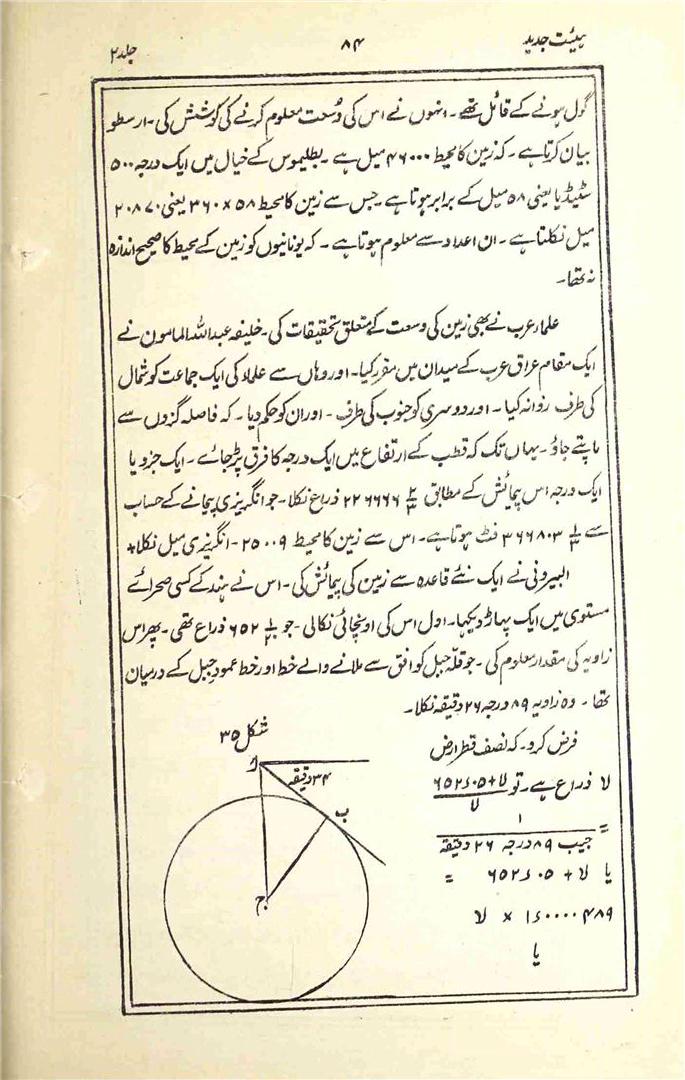 ہیئت جدید ۸۴ جلد ۲
گول ہونے کے قائل تھے۔ انہوں نے اس کی وُسعت معلوم کرنے کی کوشش کی۔ ارسطو
بیان کرتا ہے۔ کہ زمین کا محیط ۴۶۰۰۰ میل ہے۔ بطلیموس کے خیال میں ایک درجہ ۵۰۰
سٹیڈیا یعنی ۵۸ میل کے برابر ہوتا ہے۔ جس سے زمین کا محیط ۵۸ × ۳۶۰ یعنی ۲۰۸۷۰
میل نکلتا ہے۔ ان اعداد سے معلوم ہوتا ہے۔ کہ یونانیوں کو زمین کے محیط کا صحیح اندازہ
نہ تھا۔
علماء عرب نے بھی زمین کی وسعت کے متعلق تحقیقات کی۔ خلیفہ عبداللہ المامون نے
ایک مقام عراق عرب کے میدان میں مقرر کیا۔ اور وہاں سے علماء کی ایک جماعت کو شمال
کی طرف روانہ کیا۔ اور دوسری کو جنوب کی طرف۔ اور ان کو حکم دیا۔ کہ فاصلہ گزوں سے
ماپتے جاؤ۔ یہاں تک کہ قطب کے ارتفاع میں ایک درجہ کا فرق پڑ جائے۔ ایک جزو یا
ایک درجہ اس پیمائش کے مطابق ۲۲۶۶۶۶ ۲/۳ ذراع نکلا۔ جو انگریزی پیمانے کے حساب
سے ۳۶۶۸۰۳ ۱/۳ فٹ ہوتا ہے۔ اس سے زمین کا محیط ۲۵۰۰۹۔ انگریزی میل نکلا +
البیرونی نے ایک نئے قاعدہ سے زمین کی پیمائش کی۔ اس نے ہند کے کسی صحرائے
مستوی میں ایک پہاڑ دیکھا۔ اول اس کی اونچائی نکالی۔ جو ۶۵۲ ۱/۲ ذراع تھی۔ پھر اس
زاویہ کی مقدار معلوم کی۔ جو قلّہ جبل کو افق سے ملانے والے خط اور خط عمود جبل کے درمیان
تھا۔ وہ زاویہ ۸۹ درجہ ۲۶ دقیقہ نکلا۔
شکل ۳۵
فرض کرو۔ کہ نصف قطر ارض
لا ذراع ہے۔ تو لا + ۶۵۲٫۰۵ / لا
= ۱ / جیب ۸۹ درجہ ۲۶ دقیقہ
یا لا + ۶۵۲٫۰۵ =
۱٫۰۰۰۰۴۸۹ × لا
یا
۳۴ دقیقہ
ب
ج